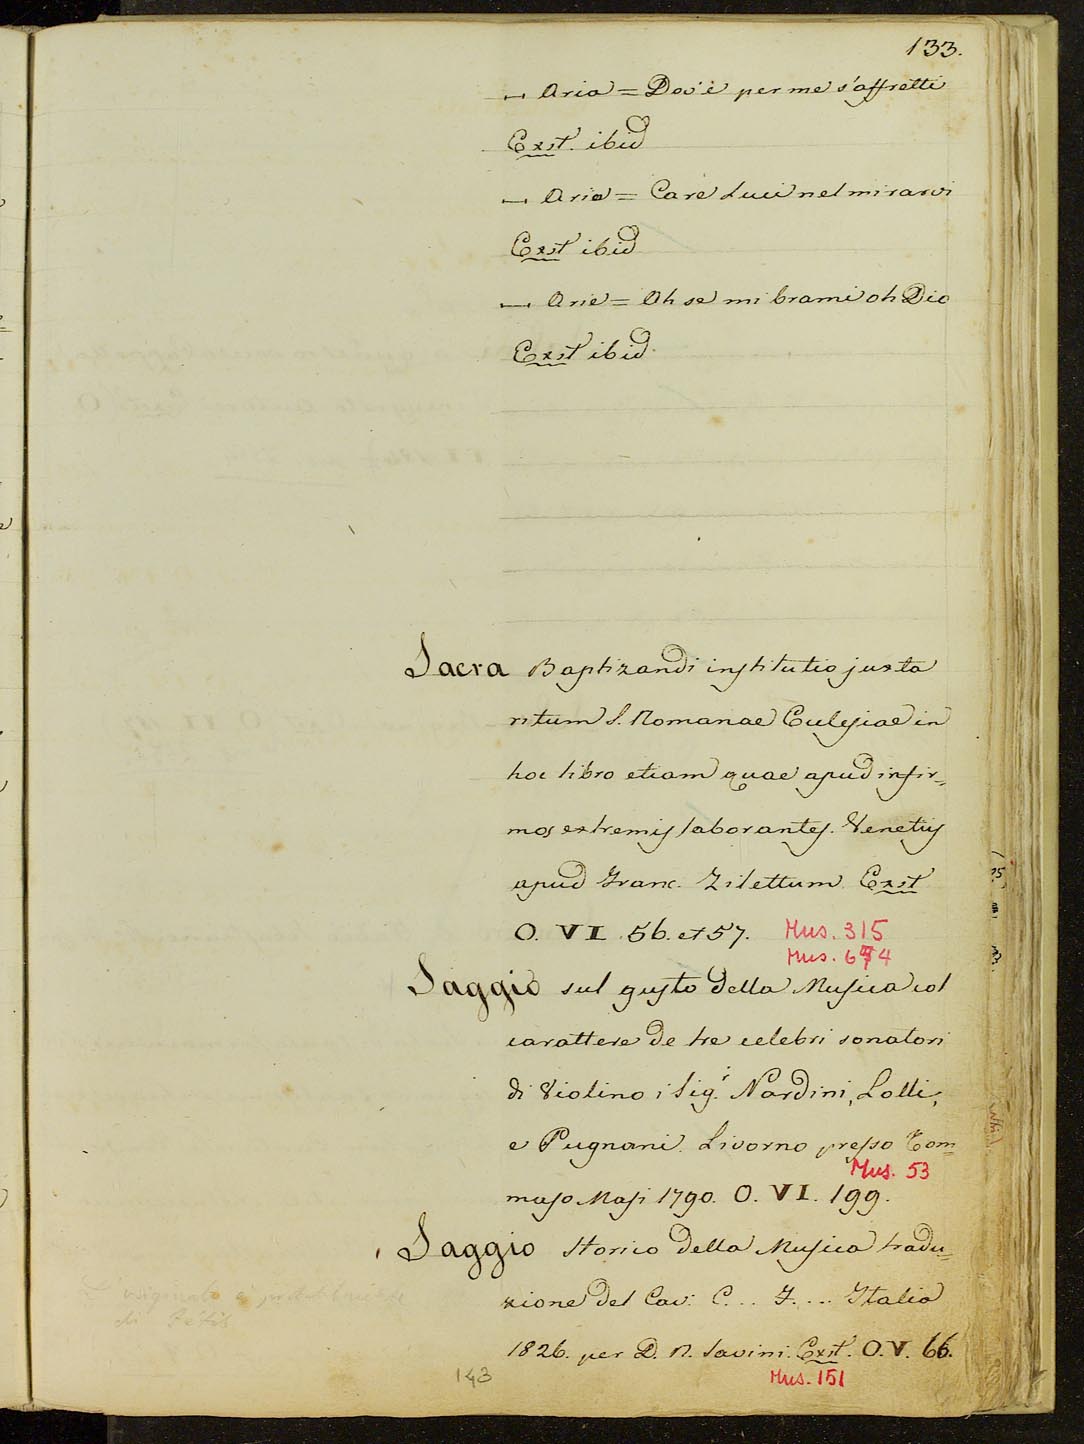 133.
— Aria = Dov'è per me s'affretti
Exst. ibid
— Aria = Care Luci nel mirarvi
Exst ibid
— Arie = Ah se mi brami oh Dio
Exst ibid.
Sacra Baptizandi institutio juxta
ritum S. Romanae Eclesiae in
hoc libro etiam quae apud infir=
mos extremis laborantes. Venetiis
apud Franc. Zilettum Exst
O. VI. 56. et 57. Mus. 315
Mus. 674
Saggio sul gusto della Musica col
carattere de tre celebri sonatori
di Violino i Sig.i Nardini, Lolli,
e Pugnani. Livorno presso Tom=
Mus. 53
maso Masi 1790. O. VI. 199.
Saggio storico della Musica tradu=
zione del Cav. C... F.... Italia
1826. per D. N. Savini. Exst. O. V. 66.
L'originale è
di Fétis
143
Mus. 151